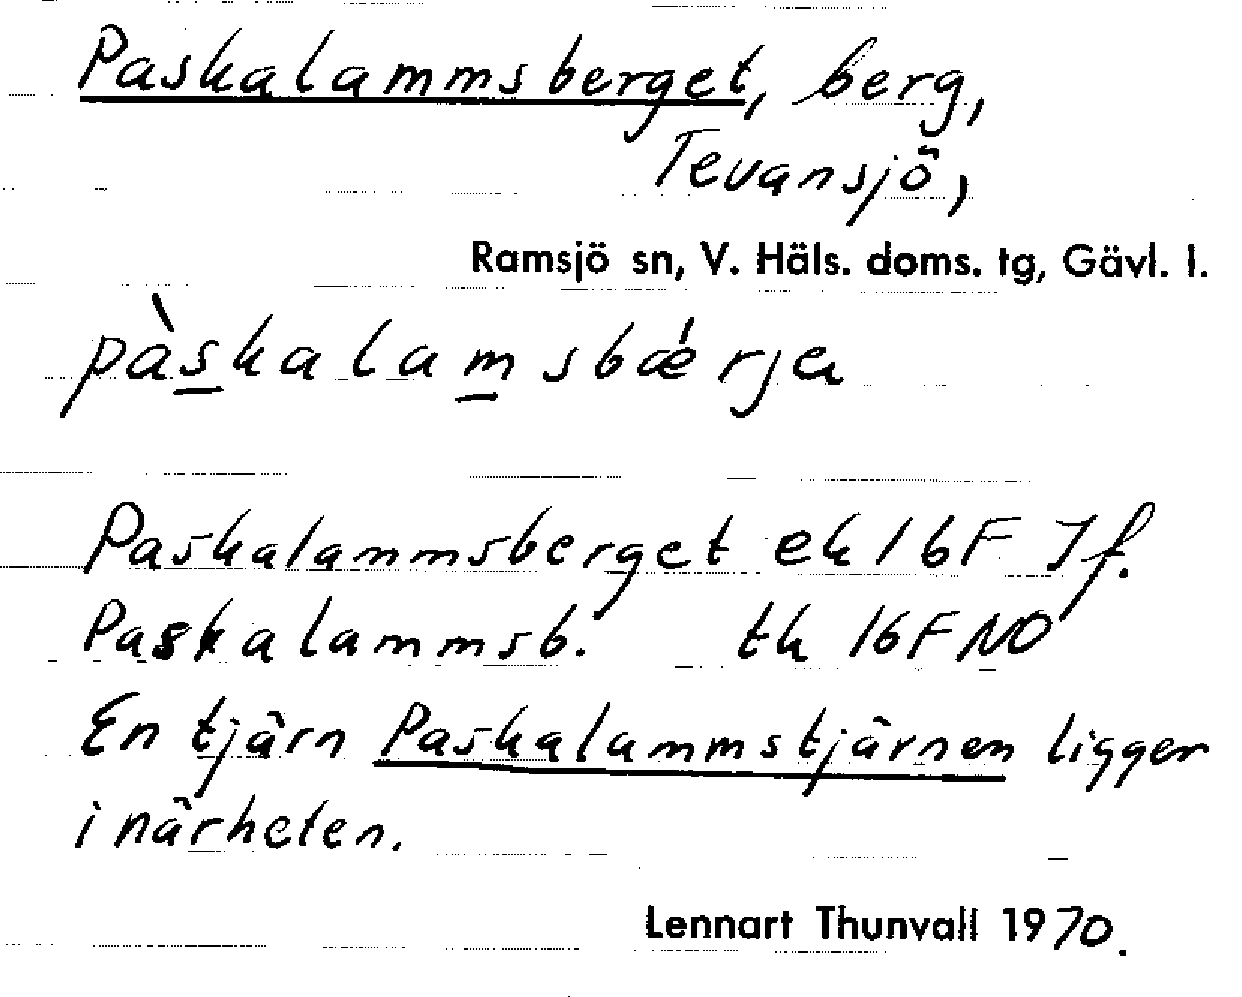 Paskalammsberget, berg,
Tevansjö,
Ramsjö sn, V. Häls. doms. tg, Gävl. l.
pàskalamsbǽrja
Paskalammsberget ek 16F 7f.
Paskalammsb. tk 16F NO
En tjärn Paskalammstjärnen ligger
i närheten.
Lennart Thunvall 1970.